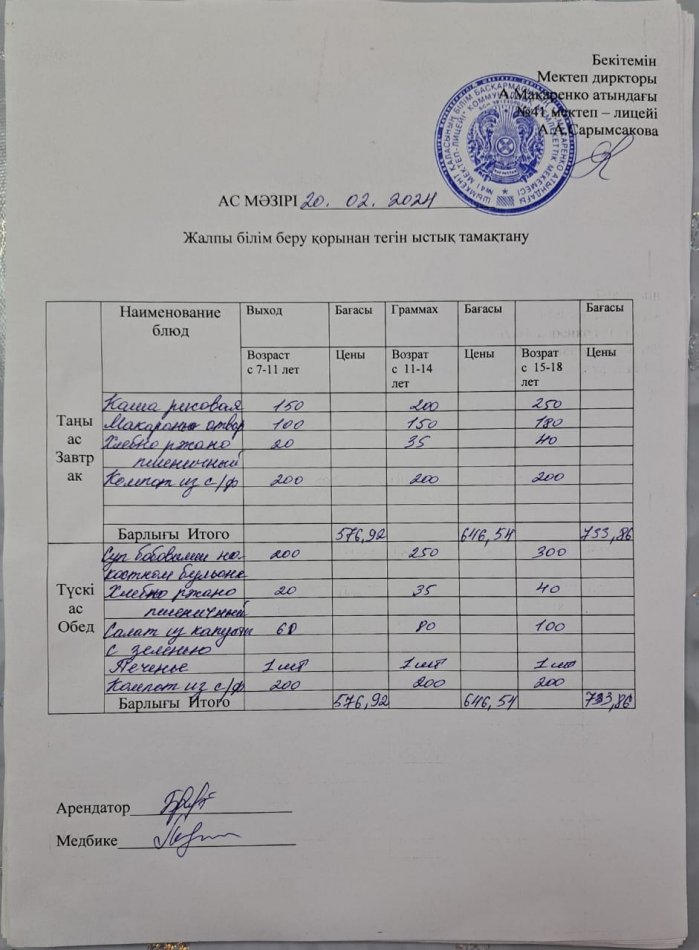 Бекітемін
Мектеп диркторы
А.Макаренко атындағы
№41 мектеп – лицейі
А.А.Сарымсакова
АС МӘЗІРІ 20. 02. 2024
Жалпы білім беру қорынан тегін ыстық тамақтану
Наименование блюд Выход Бағасы Граммах Бағасы Бағасы
Возраст с 7-11 лет Цены Возрат с 11-14 лет Цены Возрат с 15-18 лет Цены
Таңы ас Завтр ак
Каша рисовая 150 200 250
Макароны отвар 100 150 180
Хлебно ржано 20 35 40
пшеничный
Компот из с/ф 200 200 200
Барлығы Итого 576,92 646,54 733,86
Түскі ас Обед
Суп бобовыми на 200 250 300
костном бульоне
Хлебно ржано 20 35 40
пшеничный
Салат из капусты 60 80 100
с зеленью
Печенье 1 шт 1 шт 1 шт
Компот из с/ф 200 200 200
Барлығы Итого 576,92 646,54 733,86
Арендатор
Медбике